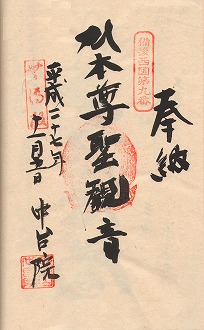 奉納
備後西国第九番
本尊聖観音
平成二十七年
十一月五日
中台院